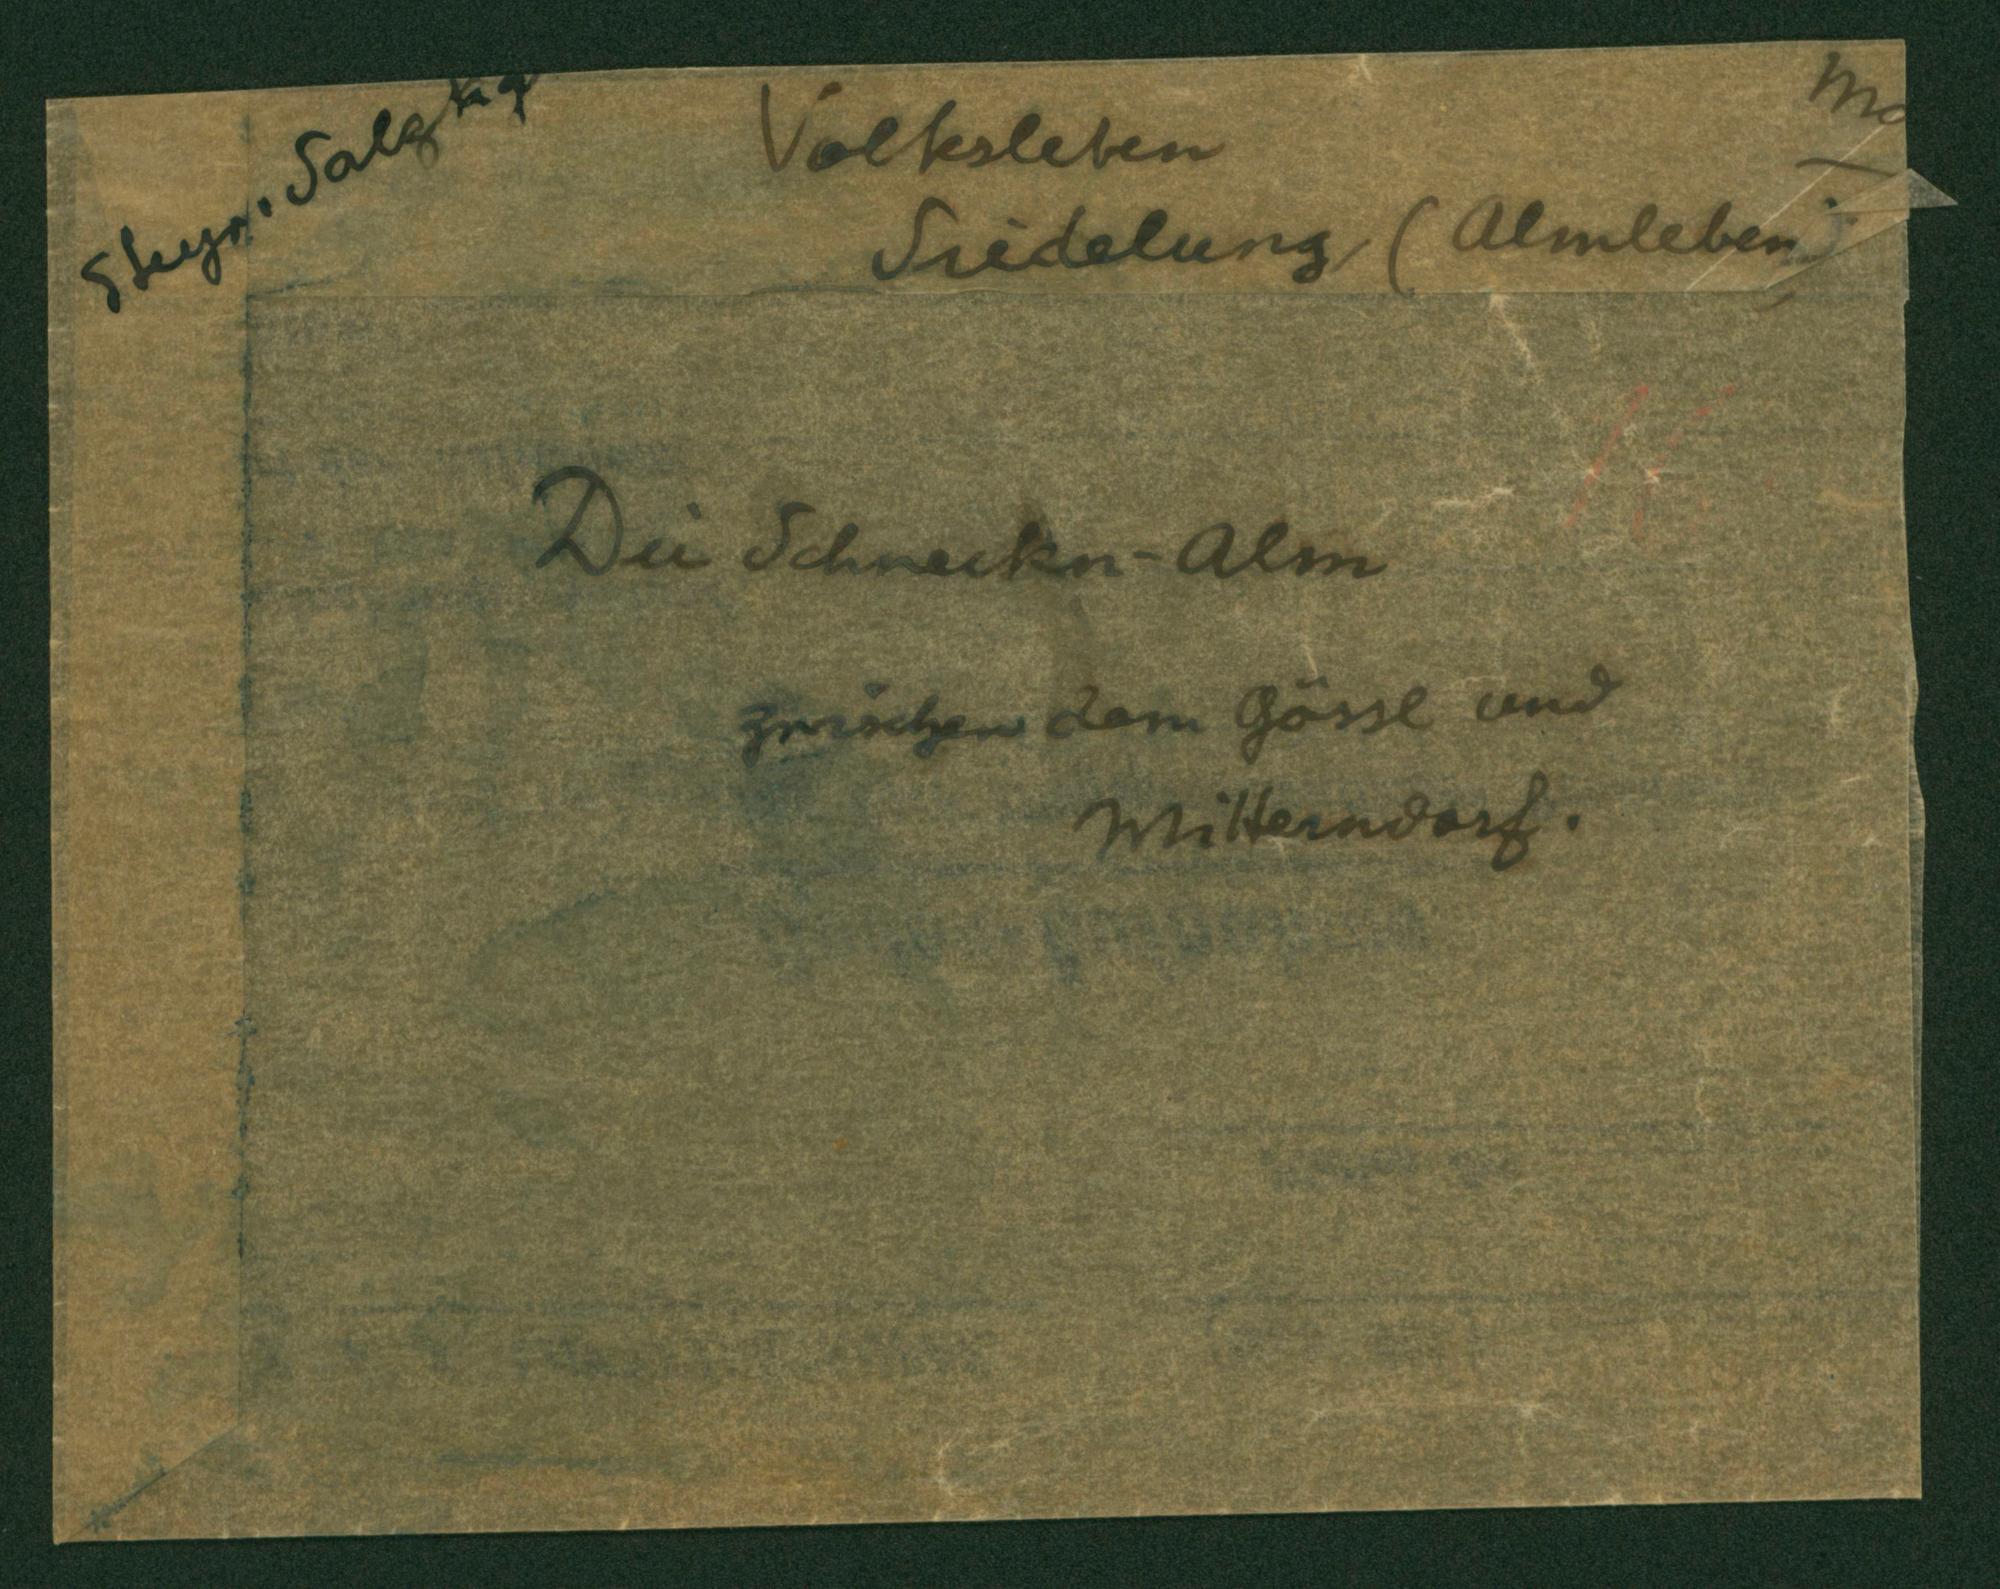 Steyr. Salzkg
Volksleben
Mo
Siedelung (Almleben)
Die Schneckn-Alm
zwischen dem Gössl und
Mitterndorf.